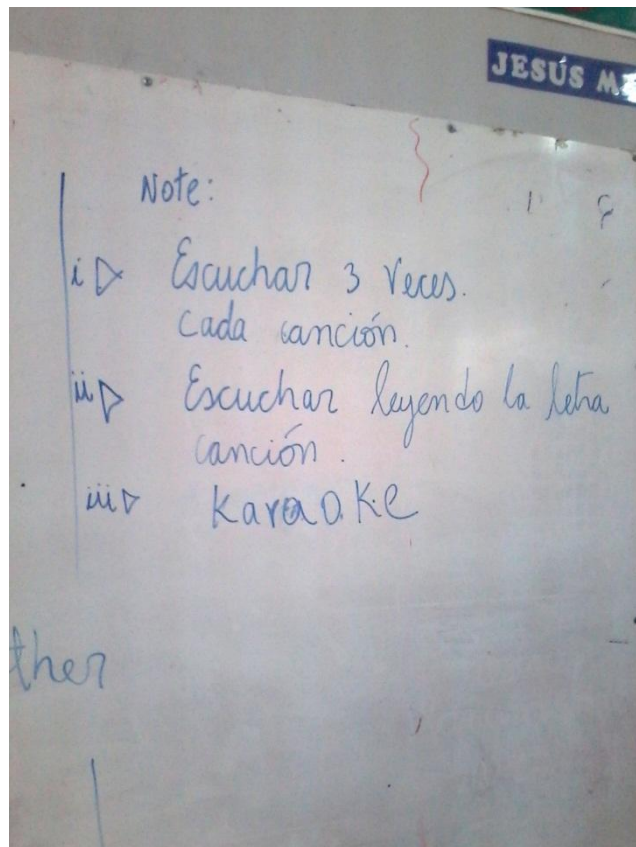 JESÚS
Note:
i▷ Escuchar 3 veces.
cada canción.
ii▷ Escuchar leyendo la letra
canción.
iii▷ Karaoke
ther